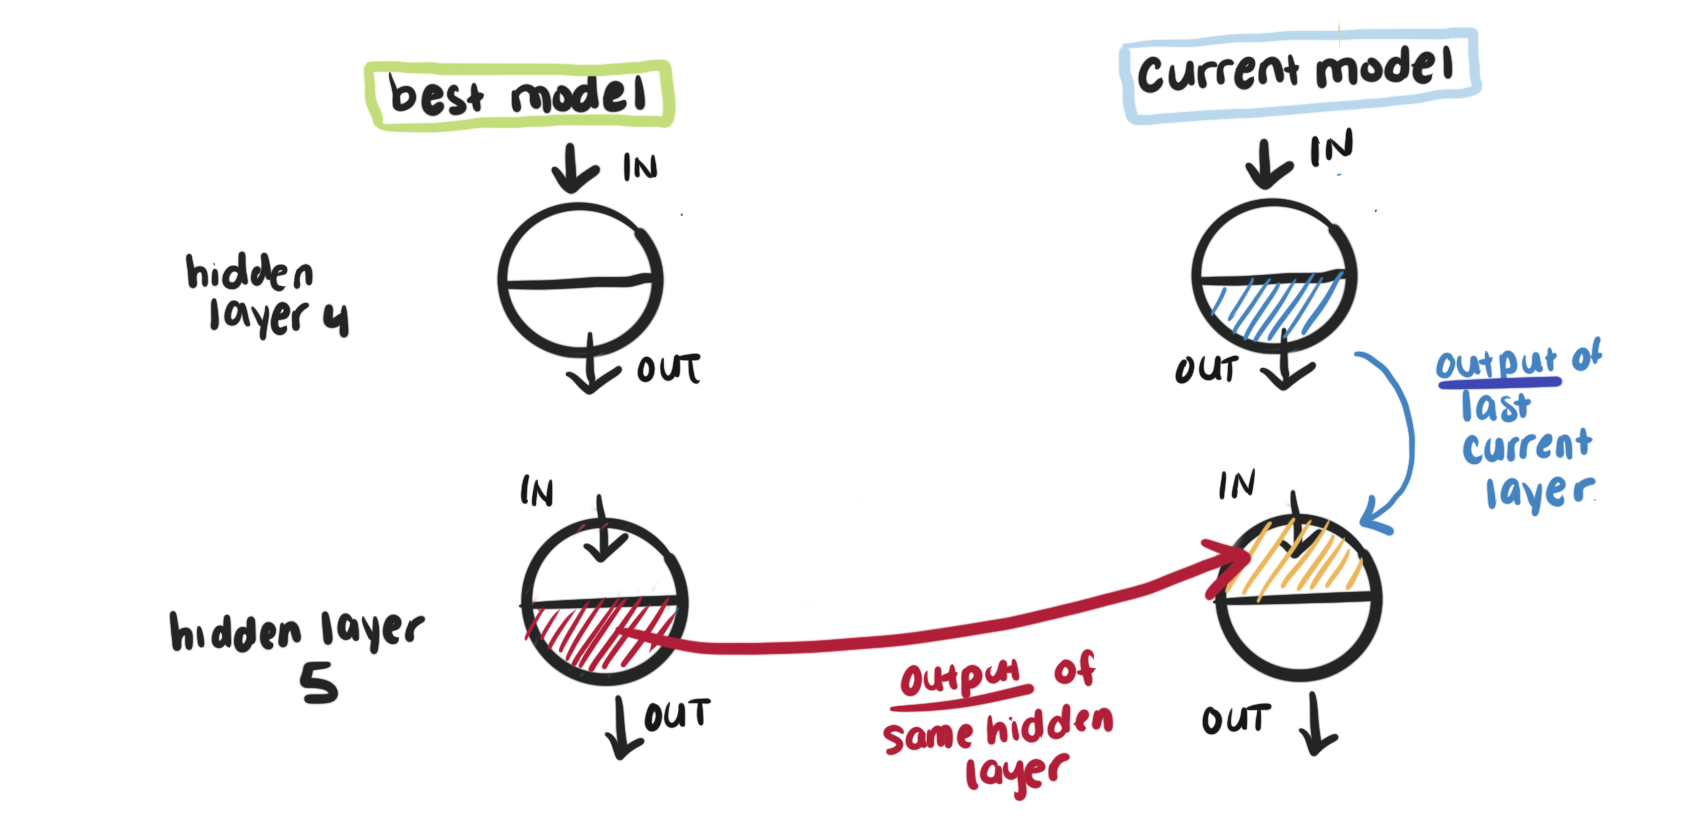 best model
current model
IN
IN
hidden
layer 4
OUT
OUT
output of
last
current
layer
IN
IN
hidden layer
5
OUT
output of
same hidden
layer
OUT